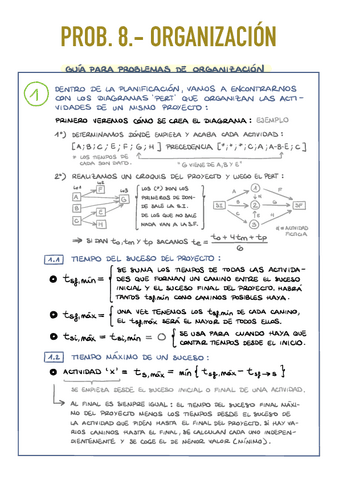 PROB. 8.- ORGANIZACIÓN
GUÍA PARA PROBLEMAS DE ORGANIZACIÓN
1 DENTRO DE LA PLANIFICACIÓN, VAMOS A ENCONTRARNOS
CON LOS DIAGRAMAS 'PERT' QUE ORGANIZAN LAS ACTI-
VIDADES DE UN MISMO PROYECTO:
PRIMERO VEREMOS CÓMO SE CREA EL DIAGRAMA: EJEMPLO
1º) DETERMINAMOS DÓNDE EMPIEZA Y ACABA CADA ACTIVIDAD:
[A;B;C;E;F;G;H] PRECEDENCIA [*;*;*;C;A;A-B-E;C]
+ LOS TIEMPOS DE
CADA SON DATO.
"G VIENE DE A, B Y E"
2º) REALIZAMOS UN CROQUIS DEL PROYECTO Y LUEGO EL PERT:
LOS (*) SON LOS
PRIMEROS DE DON-
DE SALE LA S.I.
DE LOS QUE NO SALE
NADA VAN A LA S.F.
A
B
C
E
F
G
H
SI
1
2
3
SF
ACTIVIDAD
FICTICIA
⇒ SI DAN to, tm Y tp SACANOS te = to + 4tm + tp / 6
1.1 TIEMPO DEL SUCESO DEL PROYECTO:
• tsf,mín = { SE SUMA LOS TIEMPOS DE TODAS LAS ACTIVIDA-
DES QUE FORMAN UN CAMINO ENTRE EL SUCESO
INICIAL Y EL SUCESO FINAL DEL PROYECTO. HABRÁ
TANTOS tsf,mín COMO CAMINOS POSIBLES HAYA.
• tsf,máx = { UNA VEZ TENEMOS LOS tsf,mín DE CADA CAMINO,
EL tsf,máx SERÁ EL MAYOR DE TODOS ELLOS.
• tsi,máx = tsi,mín = 0 { SE USA PARA CUANDO HAYA QUE
CONTAR TIEMPOS DESDE EL INICIO.
1.2 TIEMPO MÁXIMO DE UN SUCESO:
• ACTIVIDAD 'X' ≡ ts,máx = mín { tsf,máx - tsf→s }
SE EMPIEZA DESDE EL SUCESO INICIAL O FINAL DE UNA ACTIVIDAD.
→ AL FINAL ES SIEMPRE IGUAL: EL TIEMPO DEL SUCESO FINAL MÁXI-
MO DEL PROYECTO MENOS LOS TIEMPOS DESDE EL SUCESO DE
LA ACTIVIDAD QUE PIDEN HASTA EL FINAL DEL PROYECTO. SI HAY VA-
RIOS CAMINOS HASTA EL FINAL, SE CALCULAN CADA UNO INDEPEN-
DIENTEMENTE Y SE COGE EL DE MENOR VALOR (MÍNIMO).